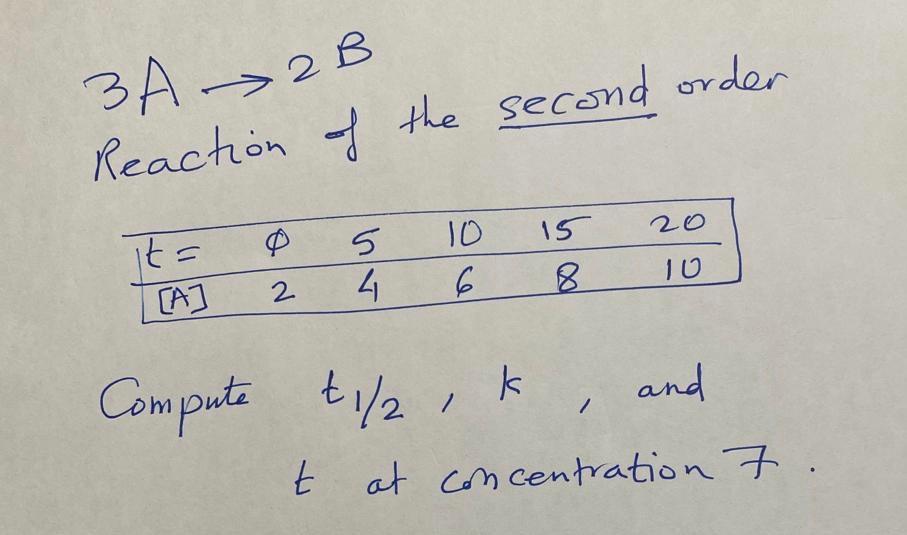 3A → 2B
Reaction of the second order
t = 0 5 10 15 20
[A] 2 4 6 8 10
Compute t1/2, k, and
t at concentration 7.